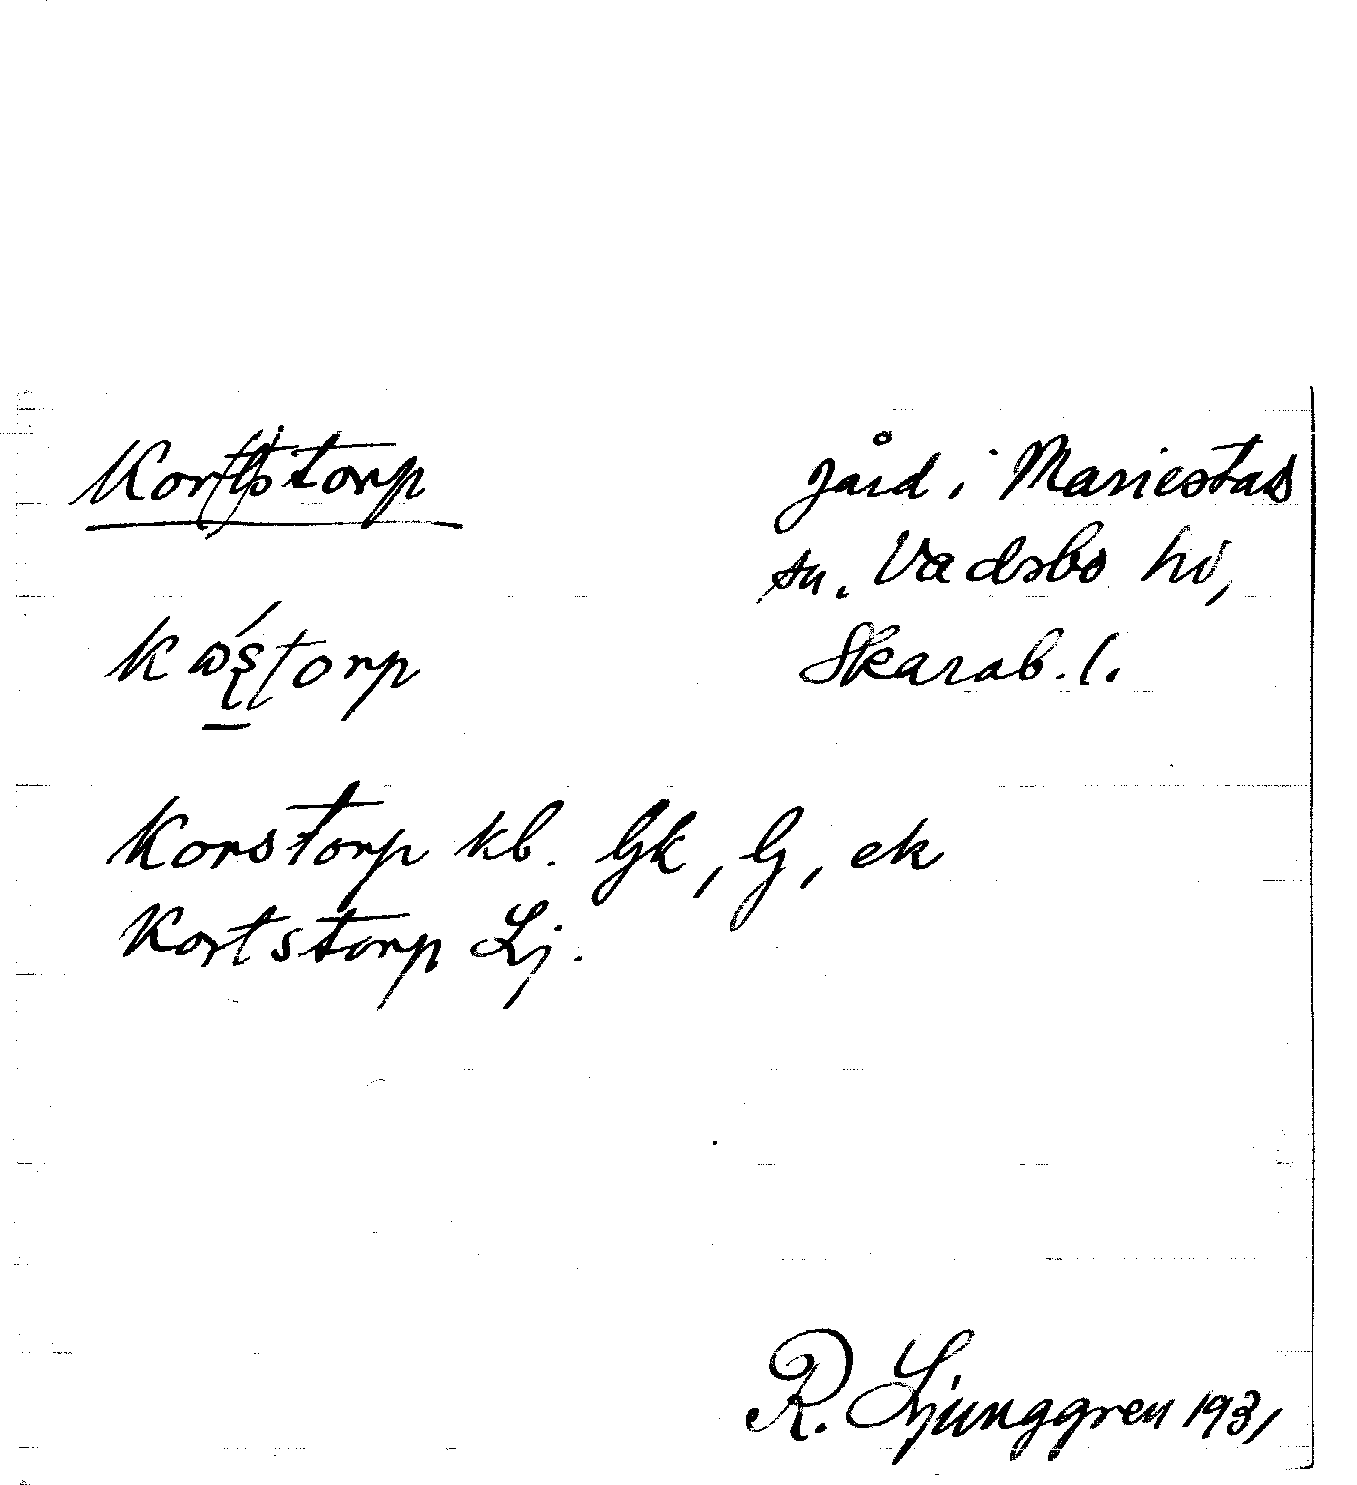 Kortstorp
gård i Mariestads
sn. Vadsbo hd,
Skarab. l.
Korstorp kb. Gk, G, ek
Kortstorp Lj.
R. Ljunggren 1931